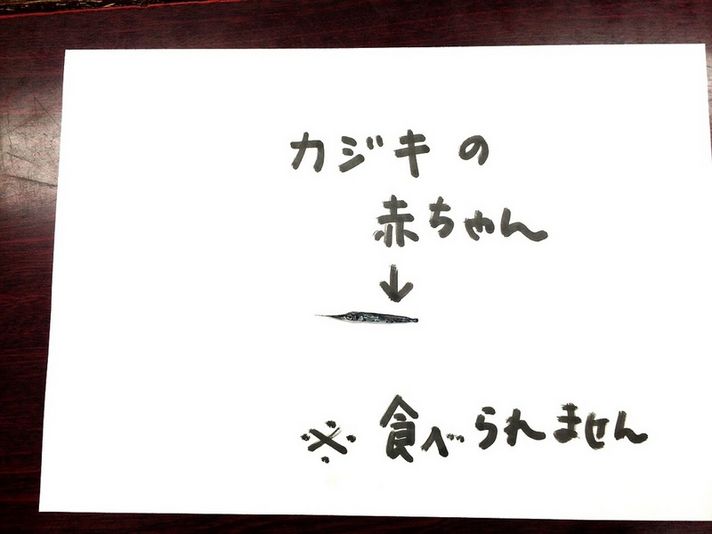 カジキの
赤ちゃん
↓
※食べられません